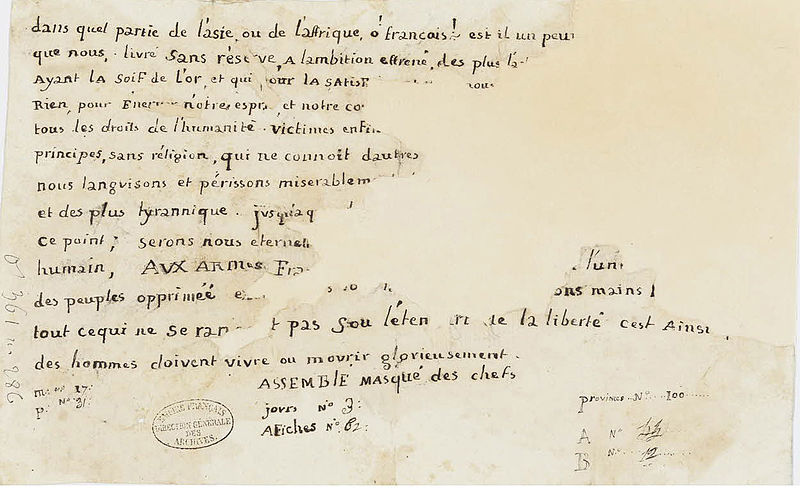 dans quel partie de l'asie, ou de l'affrique, ô français! est il un peu
que nous, livré sans réserve, A lambition effrené, des plus
Ayant LA SOIF de L'or, et qui pour LA SATISF
Rien, pour Ener notre espri et notre co
tous les droits de l'humanité. victimes enfin
principes, sans réligion, qui ne connoît dautres
nous languisons et périssons miserablem
et des plus tyrannique. jusquaq
ce point; serons nous eternell
humain, AUX ARMES Fra l'uni
des peuples opprimée ons mains!
tout cequi ne se ran t pas sou léten de la liberté cest Ainsi
des hommes doivent vivre ou mourir glorieusement.
ASSEMBLÉ MASqué des chefs
m: 17:
P. N° 31: jours N° 3: provinces N° 100
AFiches N° 62:
EMPIRE FRANÇAIS
DIRECTION GÉNÉRALE
DES
ARCHIVES.
A N° 44
B N° 12